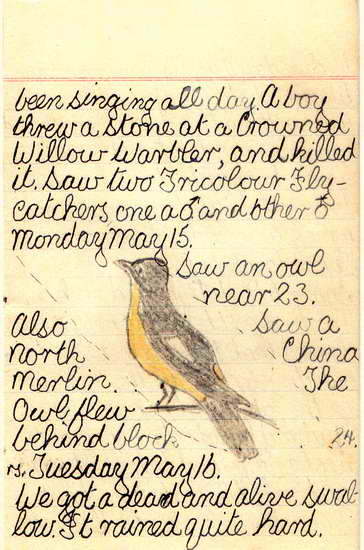 been singing all day. A boy
threw a stone at a Crowned
Willow Warbler, and killed
it. Saw two Tricolour Fly-
catchers one a ♂ and other ♂
Monday May 15.
Saw an owl
near 23.
Also saw a
North China
Merlin. The
Owl flew
behind block 24.
rs. Tuesday May 16.
We got a dead and alive swal-
low. It rained quite hard.